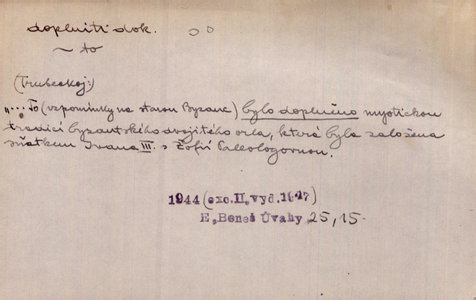 doplniti dok.
~ to
(Trubeckoj:)
"... To (vzpomínky na starou Byzanc) bylo doplněno mystickou
tradicí byzantského dvojitého orla, která byla založena
sňatkem Ivana III. s Žofií Paleologovnou.
1944 (exc. II, vyd. 1947)
E. Beneš Úvahy 25, 15.